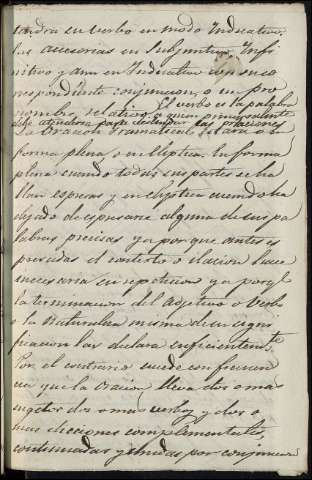 tendra su verbo en modo Indicativo,
las accesorias en Subjuntivo, Infi
nitivo y aun en Indicativo con su co
rrespondiente conjuncion, o un pro
nombre relativo. El verbo es la palabra
debe atenderse para distinguir las oraciones
La Oracion Gramatical estara o en
forma plena, o en eliptica. En forma
plena cuando todas sus partes se ha
llan espresas y en eliptica cuando ha
dejado de espresarse alguna de sus pa
labras precisas ya por que antes es
presadas el contesto o ilacion hace
innecesaria su repeticion ya por q.e
la terminacion del Adjetivo o Verbo
o la naturaleza misma de su signi
ficacion las declara suficientem.te
Por el contrario sucede con frecuen
cia que la Oracion lleva dos o mas
sugetos dos o mas verbos y dos o
mas dicciones complementales,
continuadas y unidas por conjuncion